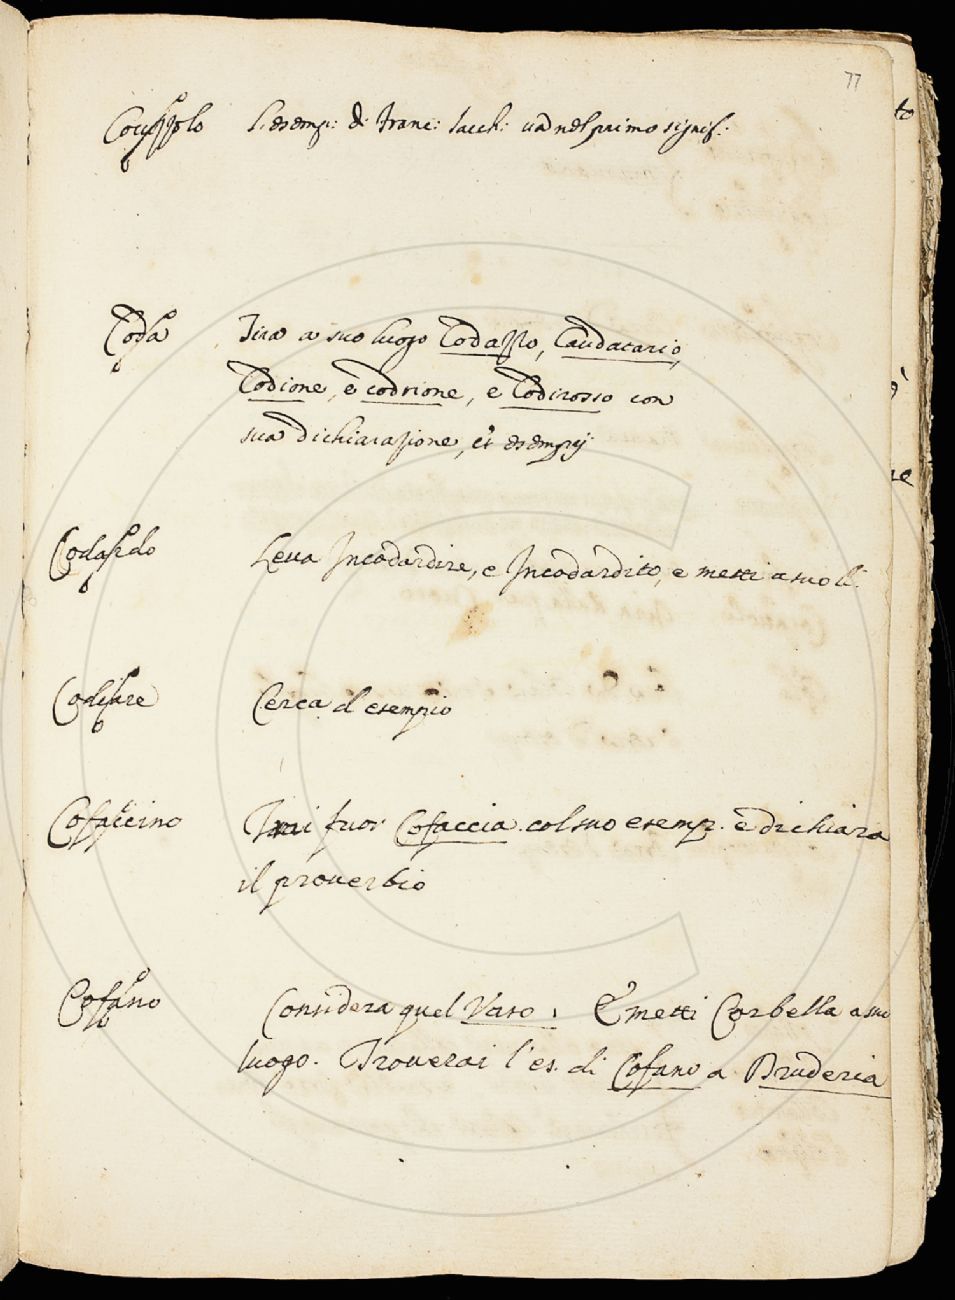 77
Cocuzzolo L'esemp: di Franc: Sacch: va nel primo signif:
Coda Tira a suo luogo Codazzo, Caudatario,
Codione, e codrione, e Codirosso con
sua dichiarazione, et esempij
Codardo Leva Incodardire, e Incodardito, e metti a suo l.
Cerca l'esempio
Cofaccino Trai fuor Cofaccia col suo esemp. e dichiara
il proverbio
Cofano Considera quel Vaso. E metti Corbella a suo
luogo. Troverai l'es. di Cofano a Bruderia